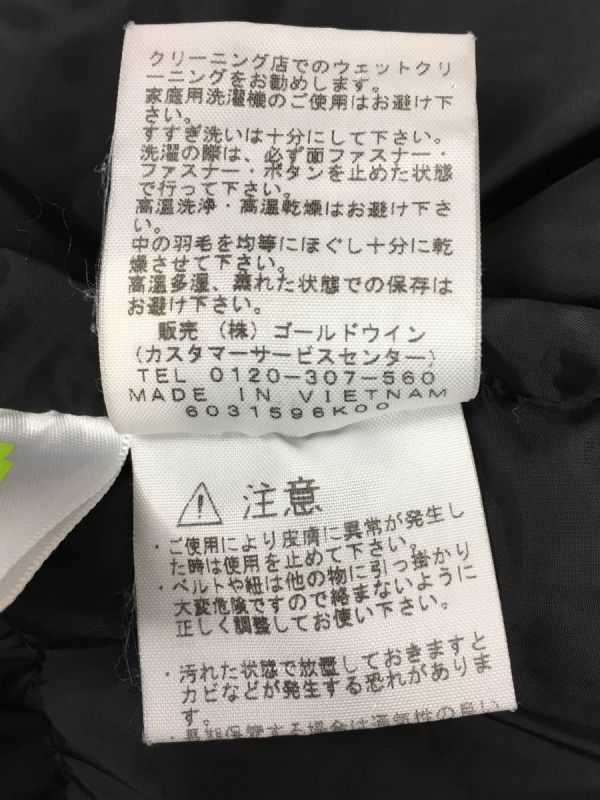 クリーニング店でのウェットクリ
ーニングをお勧めします。
家庭用洗濯機のご使用はお避け下
さい。
すすぎ洗いは十分にして下さい。
洗濯の際は、必ず面ファスナー・
ファスナー・ボタンを止めた状態
で行って下さい。
高温洗浄・高温乾燥はお避け下さ
い。
中の羽毛を均等にほぐし十分に乾
燥させて下さい。
高温多湿、蒸れた状態での保存は
お避け下さい。
販売 (株) ゴールドウイン
(カスタマーサービスセンター)
TEL 0120-307-560
MADE IN VIETNAM
6031596K00
注意
・ご使用により皮膚に異常が発生し
た時は使用を止めて下さい。
・ベルトや紐は他の物に引っ掛かり
大変危険ですので絡まないように
正しく調整してお使い下さい。
・汚れた状態で放置しておきますと
カビなどが発生する恐れがありま
す。
・長期保管する場合は通気性の良い